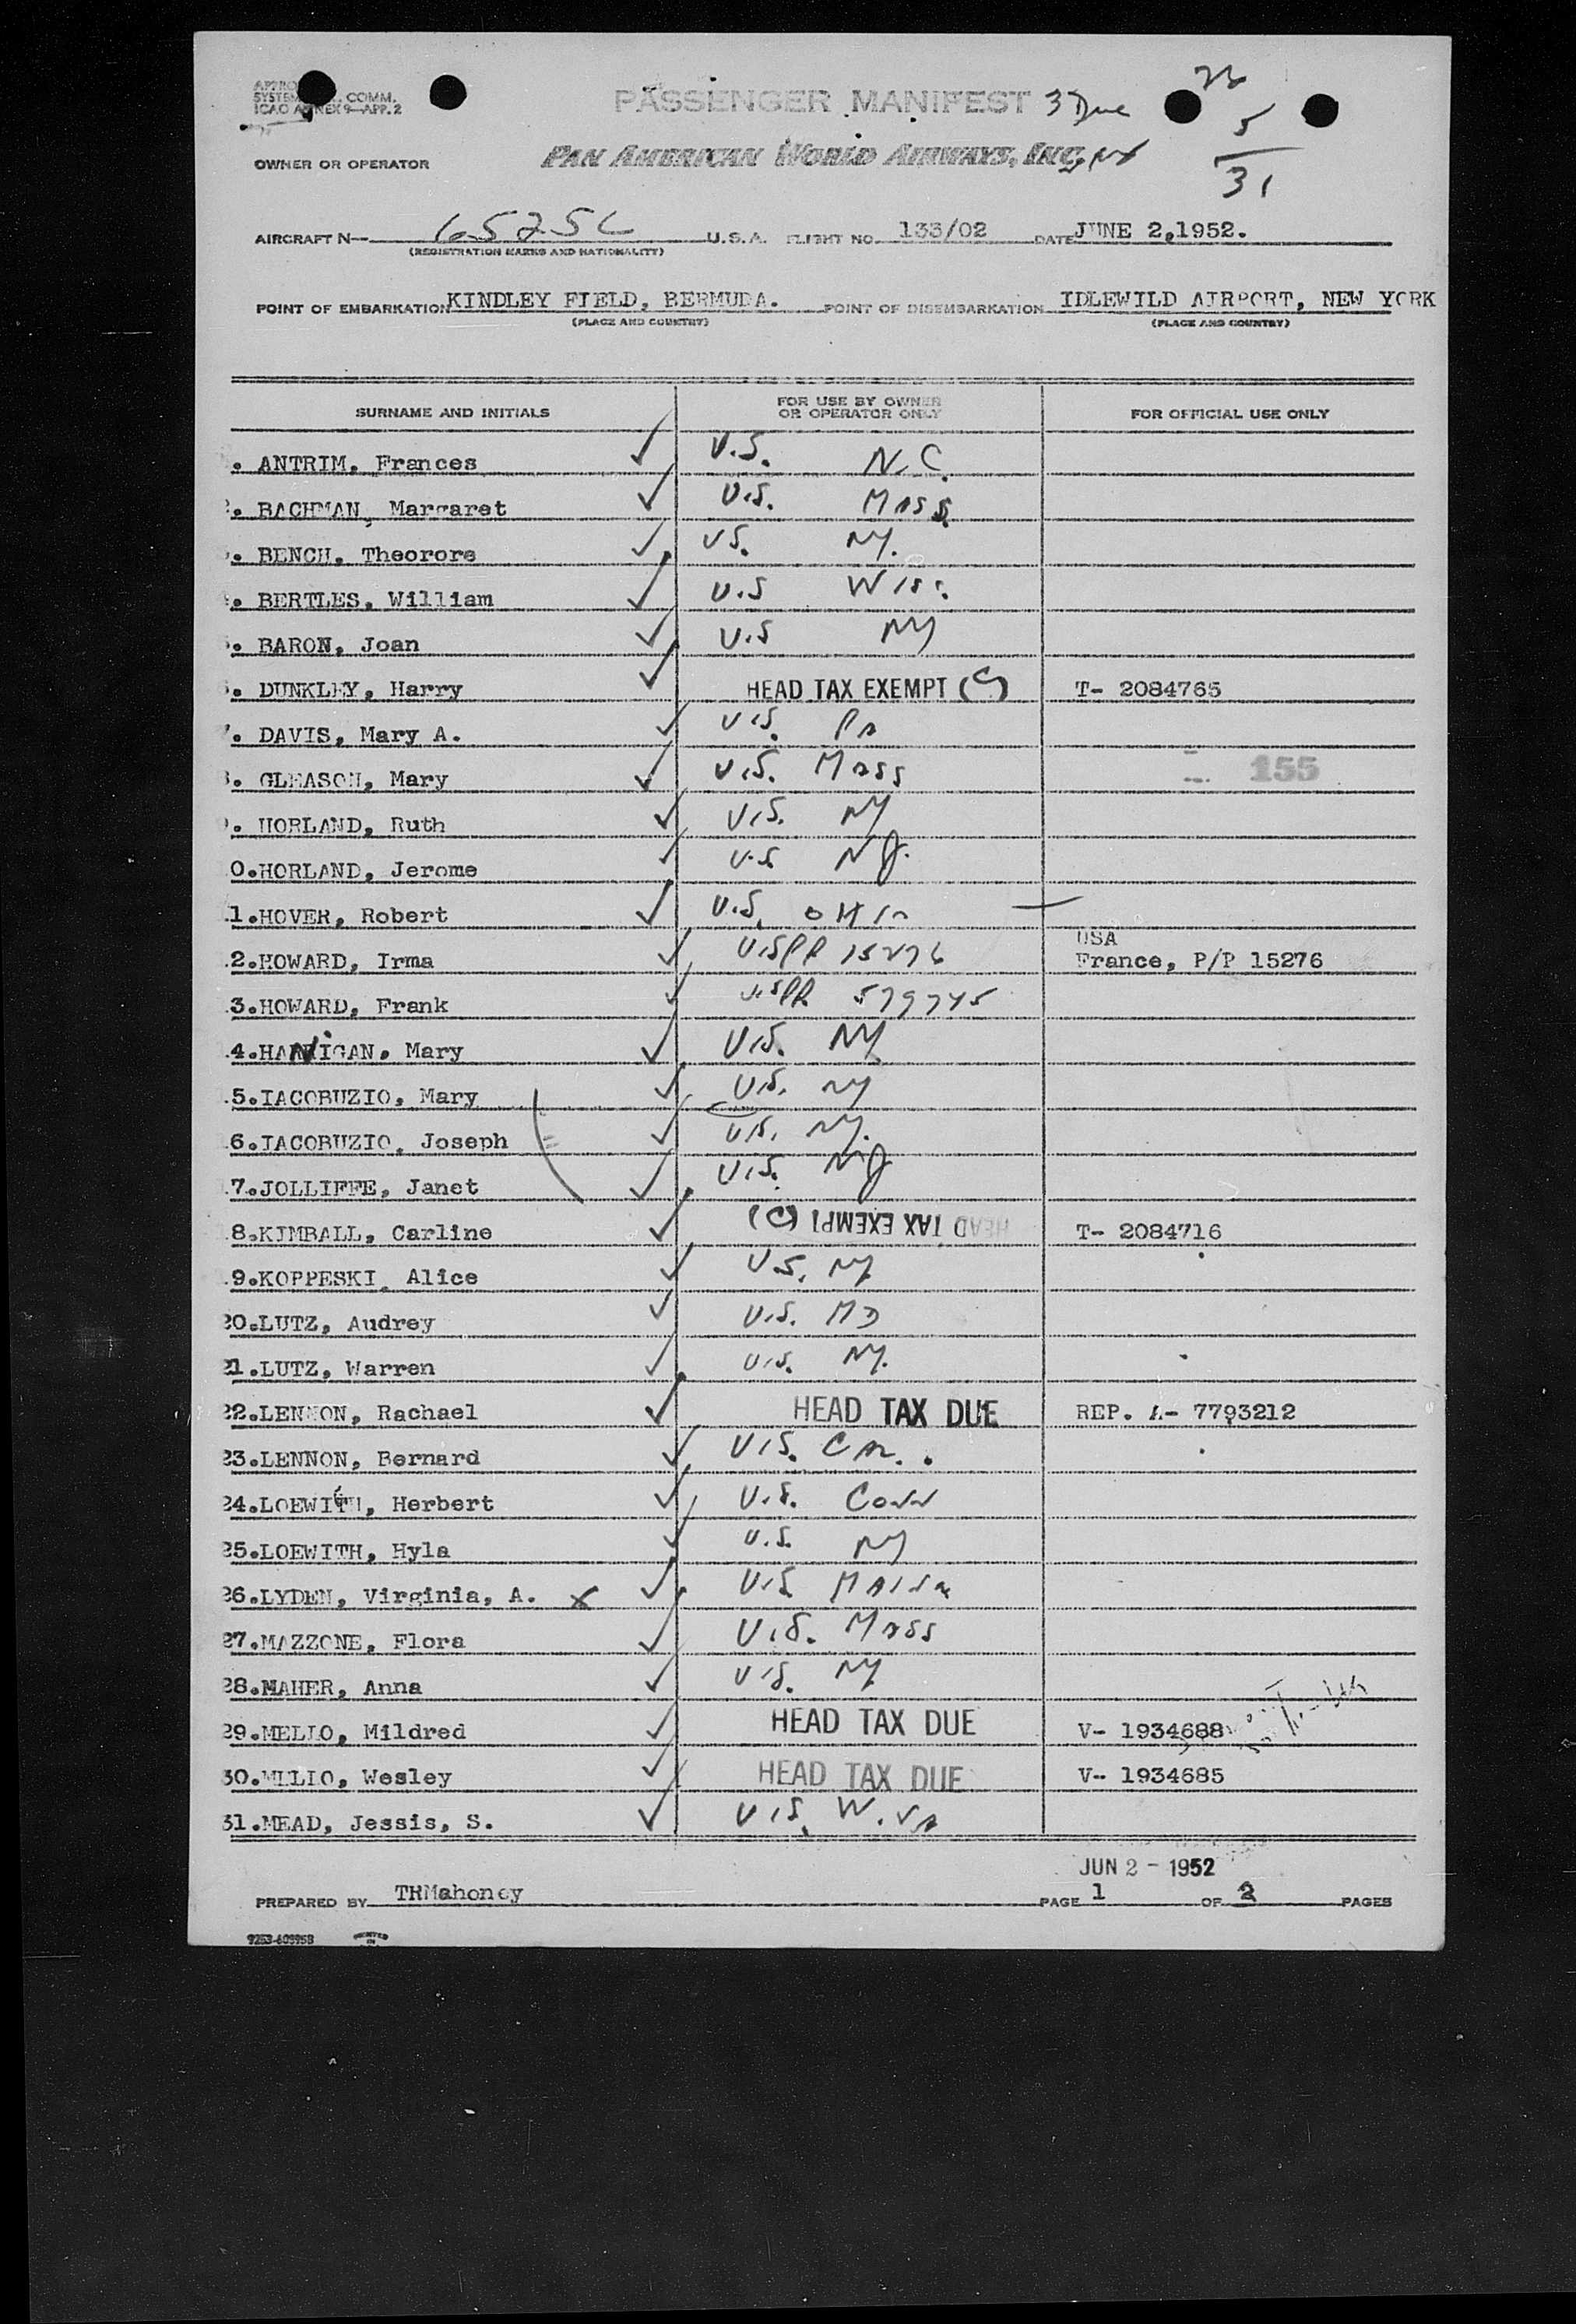 26
PASSENGER MANIFEST 3 Due
COMM.
ICAO ANNEX 9-APP. 2
5
OWNER OR OPERATOR PAN AMERICAN WORLD AIRWAYS, INC.
31
AIRCRAFT N- 6525C U.S.A. FLIGHT NO. 133/02 DATE JUNE 2,1952.
(REGISTRATION MARKS AND NATIONALITY)
POINT OF EMBARKATION KINDLEY FIELD, BERMUDA. POINT OF DISEMBARKATION IDLEWILD AIRPORT, NEW YORK
(PLACE AND COUNTRY) (PLACE AND COUNTRY)
SURNAME AND INITIALS FOR USE BY OWNER OR OPERATOR ONLY FOR OFFICIAL USE ONLY
. ANTRIM, Frances ✓ U.S. N.C.
. BACHMAN, Margaret ✓ U.S. Mass.
. BENCH, Theorore ✓ U.S. NY.
. BERTLES, William ✓ U.S Wisc.
. BARON, Joan ✓ U.S NY
. DUNKLEY, Harry ✓ HEAD TAX EXEMPT (C) T- 2084765
. DAVIS, Mary A. ✓ U.S. Pa
. GLEASON, Mary ✓ U.S. Mass 155
. HORLAND, Ruth ✓ U.S. NY
0.HORLAND, Jerome ✓ U.S NJ.
1.HOVER, Robert ✓ U.S. OHIO
2.HOWARD, Irma ✓ USPP 15276 USA France, P/P 15276
3.HOWARD, Frank ✓ USPP. 579745
4.HANNIGAN, Mary ✓ U.S. NY
5.IACOBUZIO, Mary ✓ U.S. NY
6.IACOBUZIO, Joseph ✓ U.S. NY.
7.JOLLIFFE, Janet ✓ U.S. NJ
8.KIMBALL, Carline ✓ HEAD TAX EXEMPT (C) T- 2084716
9.KOPPESKI, Alice ✓ U.S. NY
20.LUTZ, Audrey ✓ U.S. MD
21.LUTZ, Warren ✓ U.S. NY.
22.LENNON, Rachael ✓ HEAD TAX DUE REP. A- 7793212
23.LENNON, Bernard ✓ U.S. CAL.
24.LOEWITH, Herbert ✓ U.S. Conn
25.LOEWITH, Hyla ✓ U.S. NY
26.LYDEN, Virginia, A. x ✓ U.S.
27.MAZZONE, Flora ✓ U.S. Mass
28.MAHER, Anna ✓ U.S. NY
29.MELLO, Mildred ✓ HEAD TAX DUE V- 1934688
30.MELLO, Wesley ✓ HEAD TAX DUE V- 1934685
31.MEAD, Jessis, S. ✓ U.S. W.Va
JUN 2 - 1952
PREPARED BY TRMahoney PAGE 1 OF 2 PAGES
9253-603958 PRINTED IN